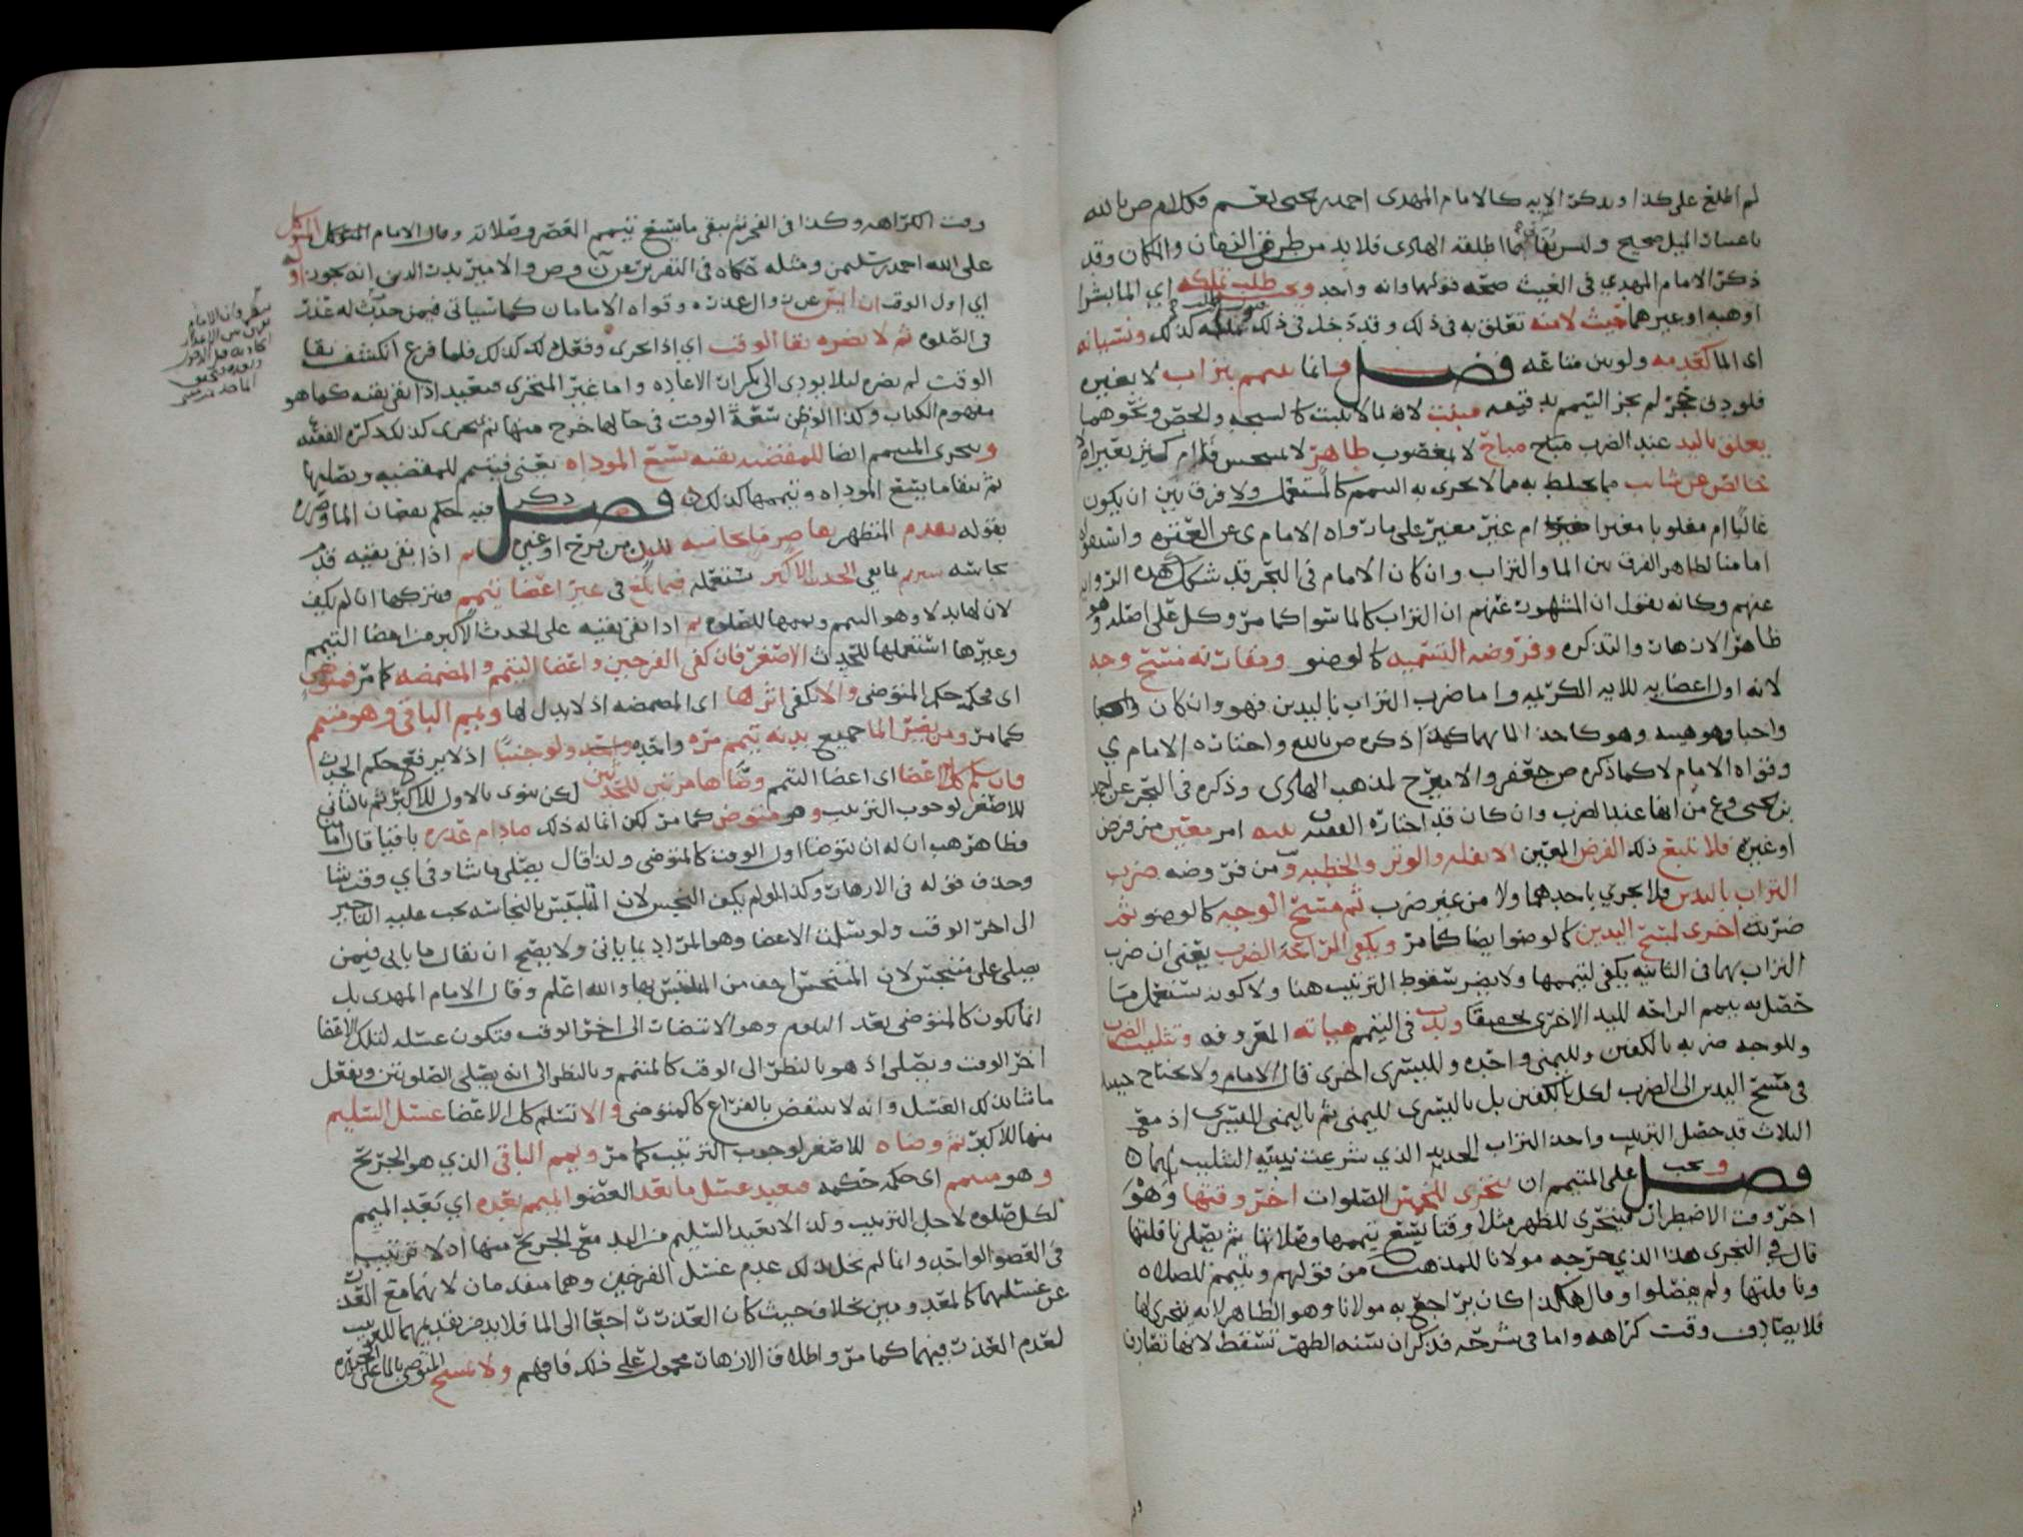 لم اطلع على كذا ويذكر الايه كالامام المهدى احمد بن يحيى نعم فكلام ص بالله
باعتبار الميل صحيح وليس بقا اطلقه الهادى فلا بد من طرفى الزمان والمكان وقد
ذكر الامام المهدي فى الغيث صحة قولها وانه واحد ويجب طلب تملكه اي الما بشرا
اوهبه اوغيرهما حيث لا منه تعلق به فى ذلك وقد دخل فى ذلك كذلك ونسيانه
اى الما كعدمه ولو بين متاعه فصل وانما يتيمم بتراب لا بغيره
فلو دق حجر لم يجز التيمم بدقيقه منبت لانه لما لا ينبت كالسبخه والجص ونحوهما
يعلق باليد عند الضرب مباح لا مغصوب طاهر لا متنجس
خالص عن شايب مما يختلط به مما لا يجزى به التيمم كالمستعمل ولا فرق بين ان يكون
غالبا ام مغلوبا مغيرا ام غير مغير على ما رواه الامام ى عن العتره واستقواه
امامنا لظاهر الفرق بين الما والتراب وان كان الامام فى البحر قد شكك هذه الروايه
عنهم وكانه يقول ان المشهور عنهم ان التراب كالما سوا كما مر وكل على اصله وهو
ظاهر الازهار والتذكره وفروضه التسميه كالوضو ومقارنته مسح وجهه
لانه اول اعضايه للايه الكريمه واما ضرب التراب باليدين فهو وان كان
واجبا وهو هيئه وهو كاخذ الما بهما كهذا ذكره ص بالله واختاره الامام ي
وقواه الامام لا كما ذكره ص جعفر والاميرح لمذهب الهادى وذكره فى البحر عن احمد
بن يحيى وع من انها عند الضرب وان كان قد اختاره الفقيه نيته امر معين من فرض
او غيره فلا تتبع ذلك الفرض المعين الا نفله والوتر والخطبه و من فروضه ضرب
التراب باليدين فلا يجزي باحدهما ولا من غير ضرب ثم مسح الوجه كالوضو ثم
ضربه اخرى لمسح اليدين كالوضو ايضا كما مر ويكفى الراحه الضرب يعنى ان ضرب
التراب بهما فى الثانيه يكفى لتيممها ولا يضر سقوط الترتيب هنا ولا كونه مستعمل مما
حصل به تيمم الراحه لليد الاخرى تحقيقا وندب فى التيمم هياته المعروفه وتثليث الضرب
وللوجه ضربه بالكفين ولليمنى واحده ولليسرى اخرى قال الامام ولا يحتاج حينئذ
فى مسح اليدين الى الضرب لكل بالكفين بل باليسرى لليمنى ثم باليمنى لليسرى اذ مع
الثلاث قد حصل الترتيب واخذ التراب الجديد الذي شرعت نيته التثليث لهما ه
فصل ويجب على المتيمم ان يتحرى للخمس الصلوات اخر وقتها وهو
اخر وقت الاضطرار فيتحرى للظهر مثلا وقتا يتسع تيممها وصلاتها ثم يصلى نافلتها
قال فى التحرى هذا الذي خرجه مولانا للمذهب من قولهم ويتيمم للصلاه
ونافلتها ولم يفصلوا وقال هكذا كان يراجع به مولانا وهو الظاهر لانه يتحرى لها
فلا يصادف وقت كراهه واما فى شرحه فذكر ان سنه الظهر تسقط لانها تقارن
وقت الكراهه وكذا فى الفجر ثم يبقى ما يتسع تيمم العصر وصلاته وقال الامام المتوكل
على الله احمد بن سليمن ومثله حكاه فى التقرير عن ن وص والامير بدر الدين انه يجوز
اي اول الوقت ان ايس عن زوال عذره وقواه الامامان كما سياتى فيمن حدث له عذر
فى الصلوه ثم لا يضره بقا الوقت اي اذا تحرى وفعل كذلك فلما فرغ انكشف بقا
الوقت لم يضره ليلا يودى الى تكرار الاعاده واما غير المتحرى فيعيد اذا بقى بقيه كما هو
مفهوم الكتاب وكذا لو ظن سعة الوقت فى حالها خرج منها ثم تحرى كذلك ذكره الفقيه
ويتحرى المتيمم ايضا للمقضيه بقيه تسع الموداه يعنى فيتيمم للمقضيه ويصليها
ثم يبقا ما يتسع الموداه وتيممها كذلك فصل ذكر فيه حكم نقصان الما وضرره
بقوله يقدم المتطهر بقاصر ما نجاسه للبدن من فرج اوغيره ثم اذا بقى بقيه قدر
لان لها بدلا وهو التيمم وتيممها للصلوه ثم اذا بقى بقيه على الحدث الاكبر من اعضا التيمم
وغيرها استعملها للحدث الاصغر فان كفى الفرجين واعضا التيمم والمضمضه كما مر فمتوض
اى حكمه حكم المتوضى والا كفى اثرها اى المضمضه اذ لا بدل لها ويمم الباقى وهو متيمم
كما مر ومن يضر الما جميع بدنه تيمم مره واحده ولو جنبا اذ لا يرفع حكم الحدث
وان سلم كل اعضا اى اعضا التيمم وضاها مرتين للحدثين لكن ينوى بالاول للاكبر ثم بالثانى
للاصغر لوجوب الترتيب وهو متوض كما مر لكن انما له ذلك مادام عذره باقيا قال
فظاهر هب ان له ان يتوضا اول الوقت كالمتوضى ولذا قال يصلى ما شا وفى اي وقت شا
وحذف قوله فى الازهار وكذا لو لم يكف النجس لان المتلبس بالنجاسه يجب عليه التاخير
الى اخر الوقت ولو سلمت الاعضا وهو المراد بما ياتى ولا يصح ان يقال ما ياتى فيمن
يصلى على متنجس لان المتنجس اخف من المتلبس بها والله اعلم وقال الامام المهدى بل
انما يكون كالمتوضى بعد التلوم وهو الانتظار الى اخر الوقت فيكون غسله لتلك الاعضا
اخر الوقت ويصلى اذ هو بالنظر الى الوقت كالمتيمم وبالنظر الى انه يصلى الصلوتين ويفعل
ما شا بذلك الغسل وانه لا ينتقض بالفراغ كالمتوضى والا تسلم كل الاعضا غسل السليم
منها للاكبر ثم وضاه للاصغر لوجوب الترتيب كما مر ويمم الباقى الذي هو الجريح
وهو متيمم اى حكمه حكمه فيعيد غسل ما بعد العضو الميمم بعده اي بعد الميمم
لكل صلوه لاجل الترتيب ولذا لا يعيد السليم من اليد مع الجريح منها اذ لا ترتيب
فى العضو الواحد وانما لم يخل بذلك عدم غسل الفرجين وهما متقدمان لانهما مع العذر
عن غسلهما كالمعدومين بخلاف حيث كان العذر راجعا الى الما فلا بد من تقديمهما للترتيب
لعدم العذر فيهما كما مر واطلاق الازهار محمول على ذلك فافهم ولا يمسح المتوضى بالما على الجبيره